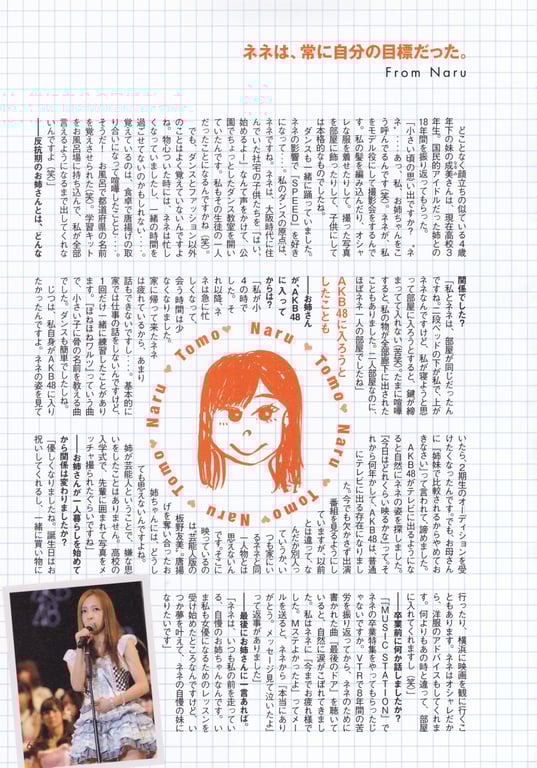 ネネは、常に自分の目標だった。
From Naru
どことなく顔立ちの似ている4歳
年下の妹の成美さんは、現在高校3
年生。国民的アイドルだった姉との
18年間を振り返ってもらった。
「小さい頃の思い出ですか? ネ
ネ‥‥あっ、私、お姉ちゃんをこ
う呼んでるんです(笑)。ネネが、私
をモデル役にして撮影会をするんで
す。私の髪を編み込んだり、オシャ
レな服を着せたりして。撮った写真
を部屋に飾ったりして、子供にして
は本格的なものでしたね。
ダンスも一緒に踊っていました。
ネネの影響で『SPEED』を好き
になって‥‥。私のダンスの原点は、
ネネですね。ネネは、大阪時代に住
んでいた社宅の子供たちを「はい、
始めるよー」なんて声をかけて、公
園でちょっとしたダンス教室を開い
ていたんです。私もその生徒の一人
だったことになるんですかね(笑)。
でも、ダンスとファッション以外
のことはよく覚えていないんですよ
ね。物心ついた時には、ネネは忙し
くなっていたし‥‥。一緒の時間を
過ごせてないのかもしれない‥‥。
覚えているのは、食卓で唐揚げの取
り合いになって喧嘩したこと‥‥。
そうだ! お風呂で都道府県の名前
を覚えさせられた(笑)。学習キット
をお風呂場に持ち込んで、私が全部
言えるようになるまで出してくれな
いんですよ(笑)」
――反抗期のお姉さんとは、どんな
関係でした?
「私とネネは、部屋が同じだったん
ですね。二段ベッドの下が私で、上が
ネネなんですけど、私が寝ようと思
って部屋に入ろうとすると、鍵が締
まってて入れない(苦笑)。たまに喧嘩
すると、私の物が全部廊下に出された
こともありました。二人部屋なのに、
ほぼネネ一人の部屋でしたね」
AKB48に入ろうと
したことも
――お姉さん
が、AKB48
に入って
からは?
「私が小
4の時で
した。そ
れ以降、ネ
ネは急に忙
しくなって
会う時間は少
なくなりました。
家に帰って来たネネ
は疲れているから、あまり
話もできないですし‥‥。基本的に
家では仕事の話をしないんですけど、
1回だけ一緒に練習したことがあり
ます。『ほねほねワルツ』っていう曲
で、小さい子に骨の名前を教える曲
でした。ダンスも簡単でしたしね。
じつは、私自身がAKB48に入り
たかったんですよ。ネネの姿を見て
Tomo Naru Tomo Naru Tomo Naru Tomo Naru
いたら、2期生のオーディションを受
けたくなったんです。でも、お母さん
に「姉妹で比較されるからやめてお
きなさい」って言われて、諦めました。
AKB48がテレビに出るようにな
ると自然にネネの姿を探しました。
「今日はどれくらい映るかな」って。そ
れから何年かして、AKB48は、普通
にテレビに出る存在になりまし
た。今でも欠かさず出演
番組を見るようにし
ていますが、以前
とは違ってな
んだか別人っ
ていうか、い
つも家にい
るネネと同
一人物とは
思えない
です。そこに
映っているの
は〝芸能人版の
板野友美〟。唐揚
げを奪い合ったお
姉ちゃんには、どうし
ても思えないんですよね。
姉が芸能人ということで、嫌な思
いをしたことはありません。高校の
入学式で、先輩に囲まれて写真をメ
ッチャ撮られたくらいですね」
――お姉さんが一人暮らしを始めて
から関係は変わりましたか?
「優しくなりましたね。誕生日はお
祝いしてくれるし、一緒に買い物に
行ったり、横浜に映画を観に行くこ
ともあります。ネネはオシャレだか
ら、洋服のアドバイスもしてくれま
す。何よりもあの時と違って、部屋
に入れてくれますし(笑)」
――卒業前に何か話しましたか?
「『MUSIC STATION』で
ネネの卒業特集をやってもらったじ
ゃないですか。VTRで8年間の苦
労を振り返ってから、ネネのために
書かれた曲『最後のドア』を聴いて
いると、自然に涙がこぼれてきまし
た。私はネネに「今までお疲れ様で
した。Mステよかったよ」ってメー
ルを送ると、ネネから「本当にあり
がとう。メッセージ見て泣いたよ」
って返事がありました」
――最後にお姉さんに一言あれば。
「ネネは、いつも私の前を走ってい
る、自慢のお姉ちゃんなんです。い
ま私も女優になるためのレッスンを
受け始めたところなんですけど、い
つか夢を叶えて、ネネの自慢の妹に
なりたいです」
AKB48